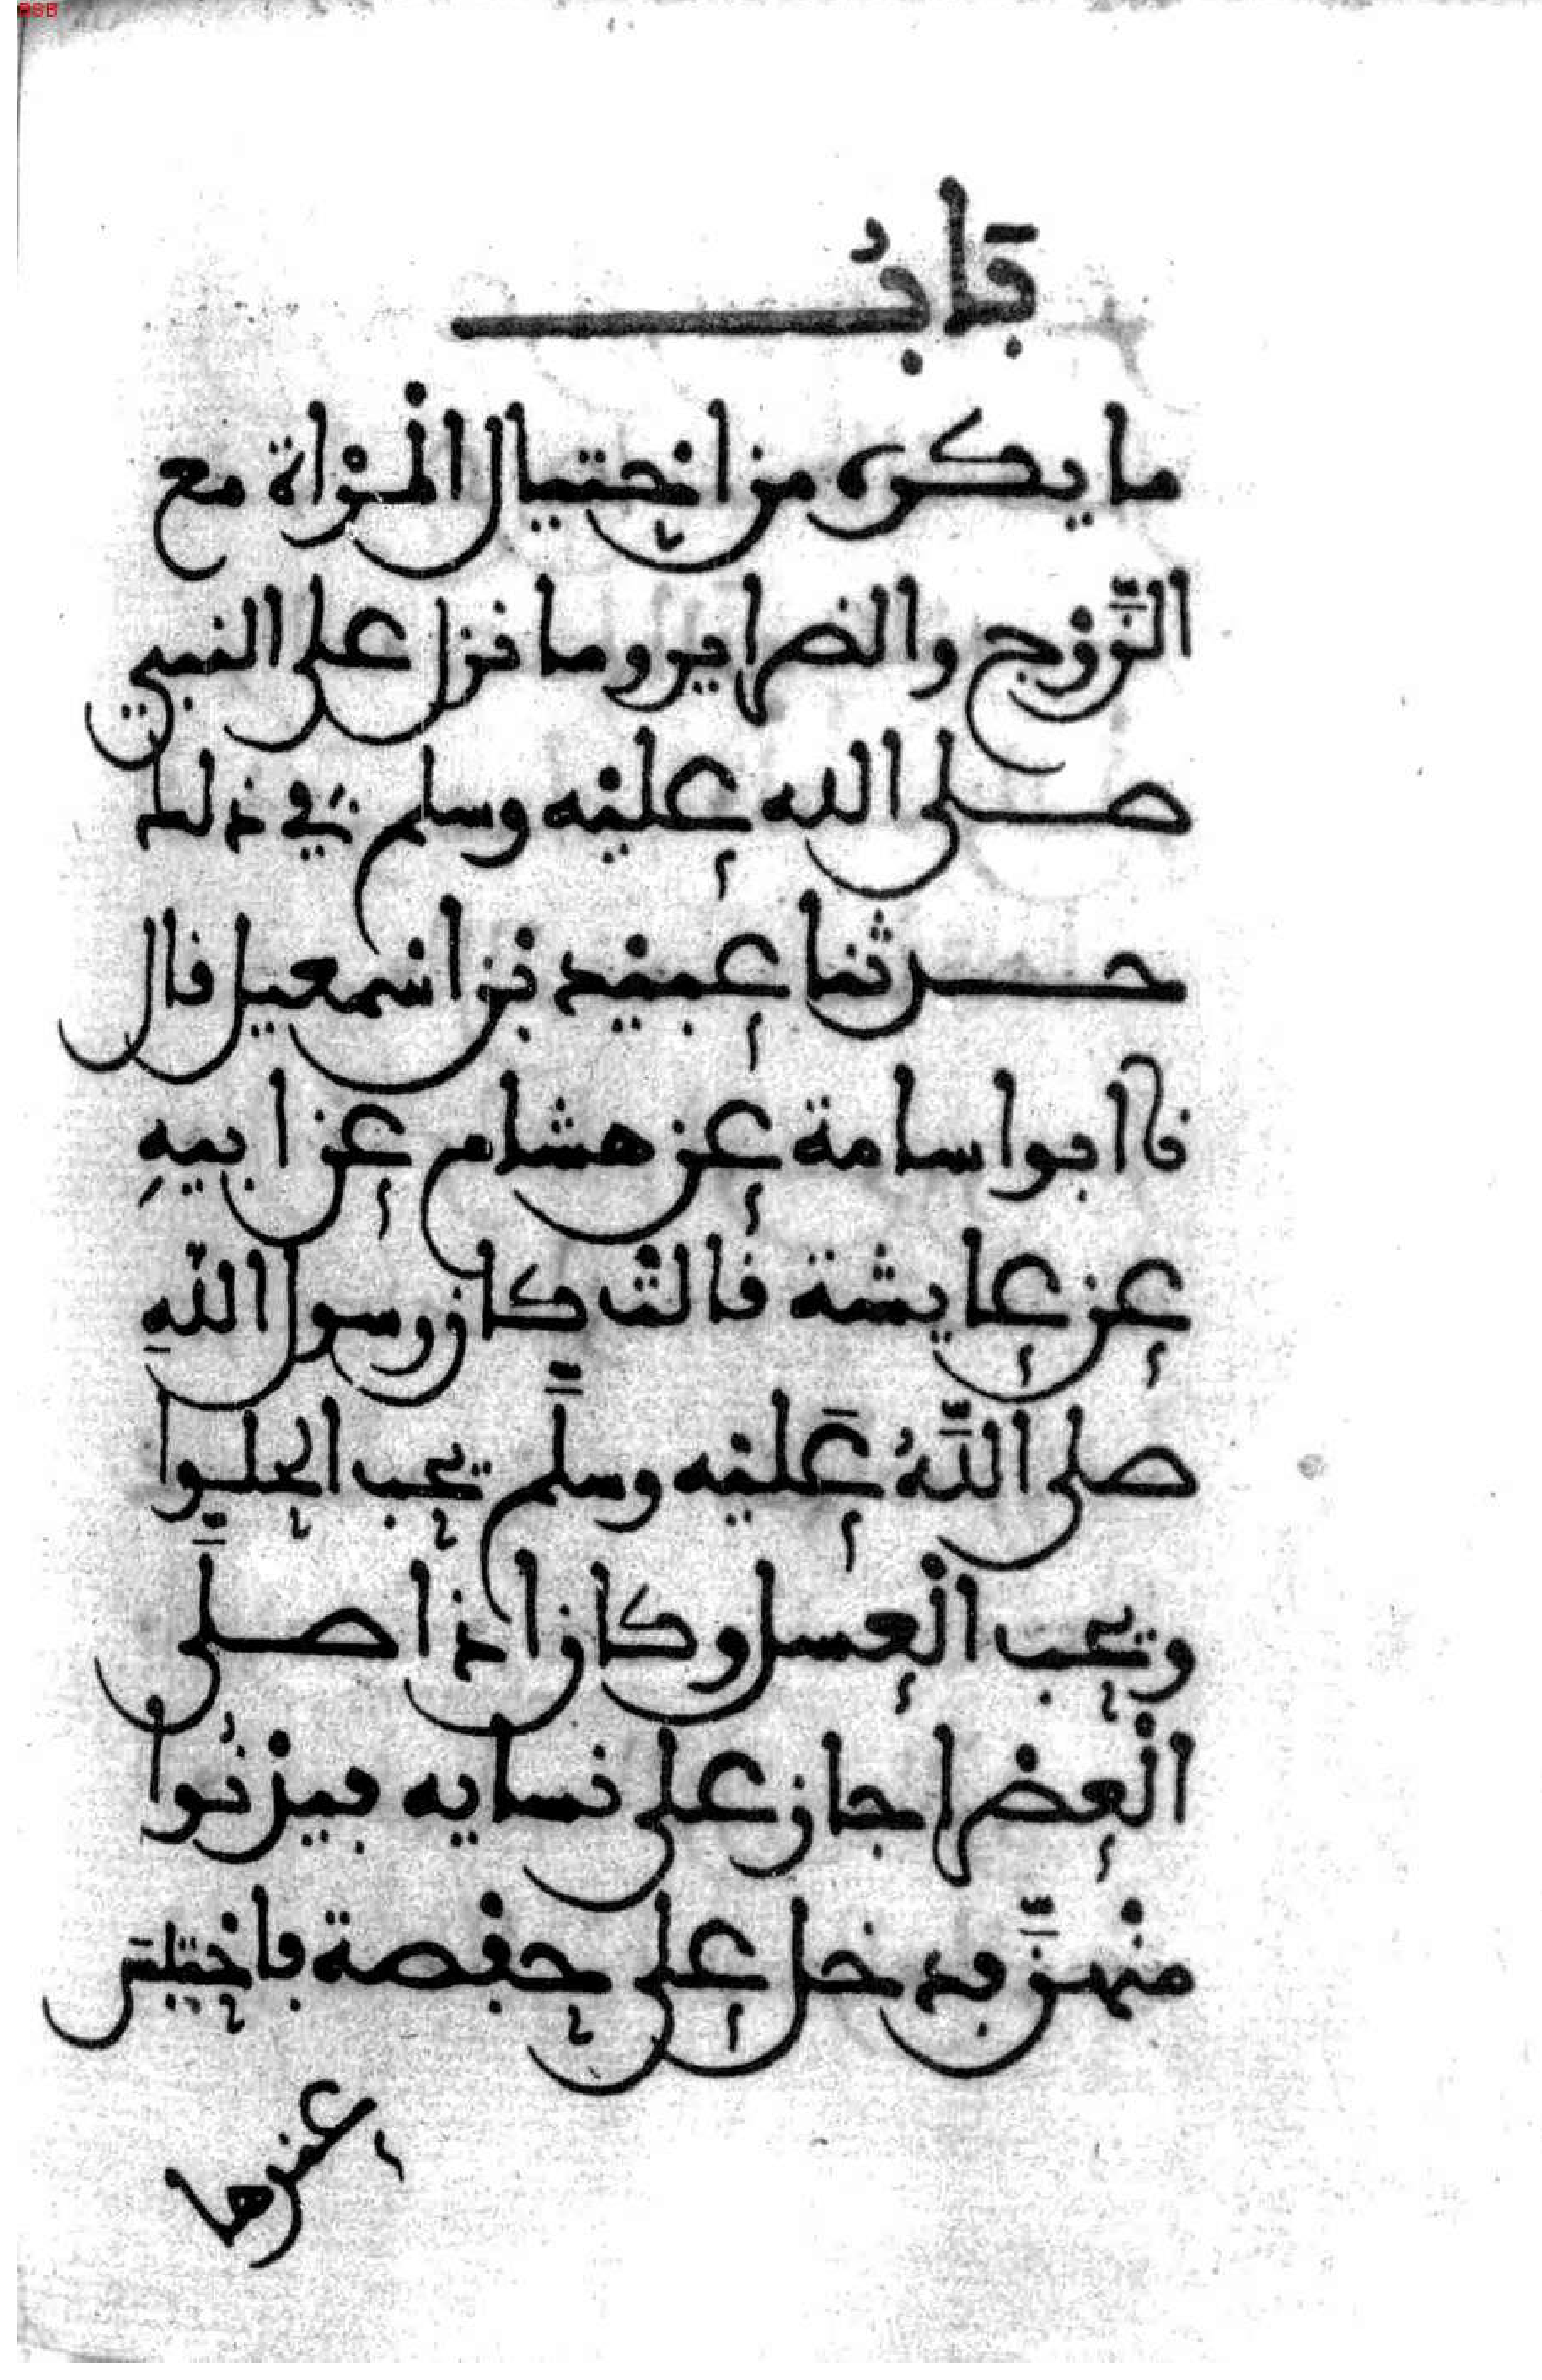 BSB
بَابُ
ما يكره من احتيال المرْاة مع
الزَّوْج والضراير وما نزل على النبي
صلى الله عليْه وسلم في ذلك
حدثنا عبيْد بْن اسْمعيل قال
نا ابو اسامة عن هشام عن ابيهِ
عن عايشة قالتْ كان رسول اللهِ
صلى اللَّهُ عَليْه وسلَّم يحب الحلوا
ويحب الْعسل وكان اذا صلَّى
الْعصْر اجاز على نسايه فيدْنُوا
منْهنَّ فدخل على حفْصة فاحْتبَسَ
عندها